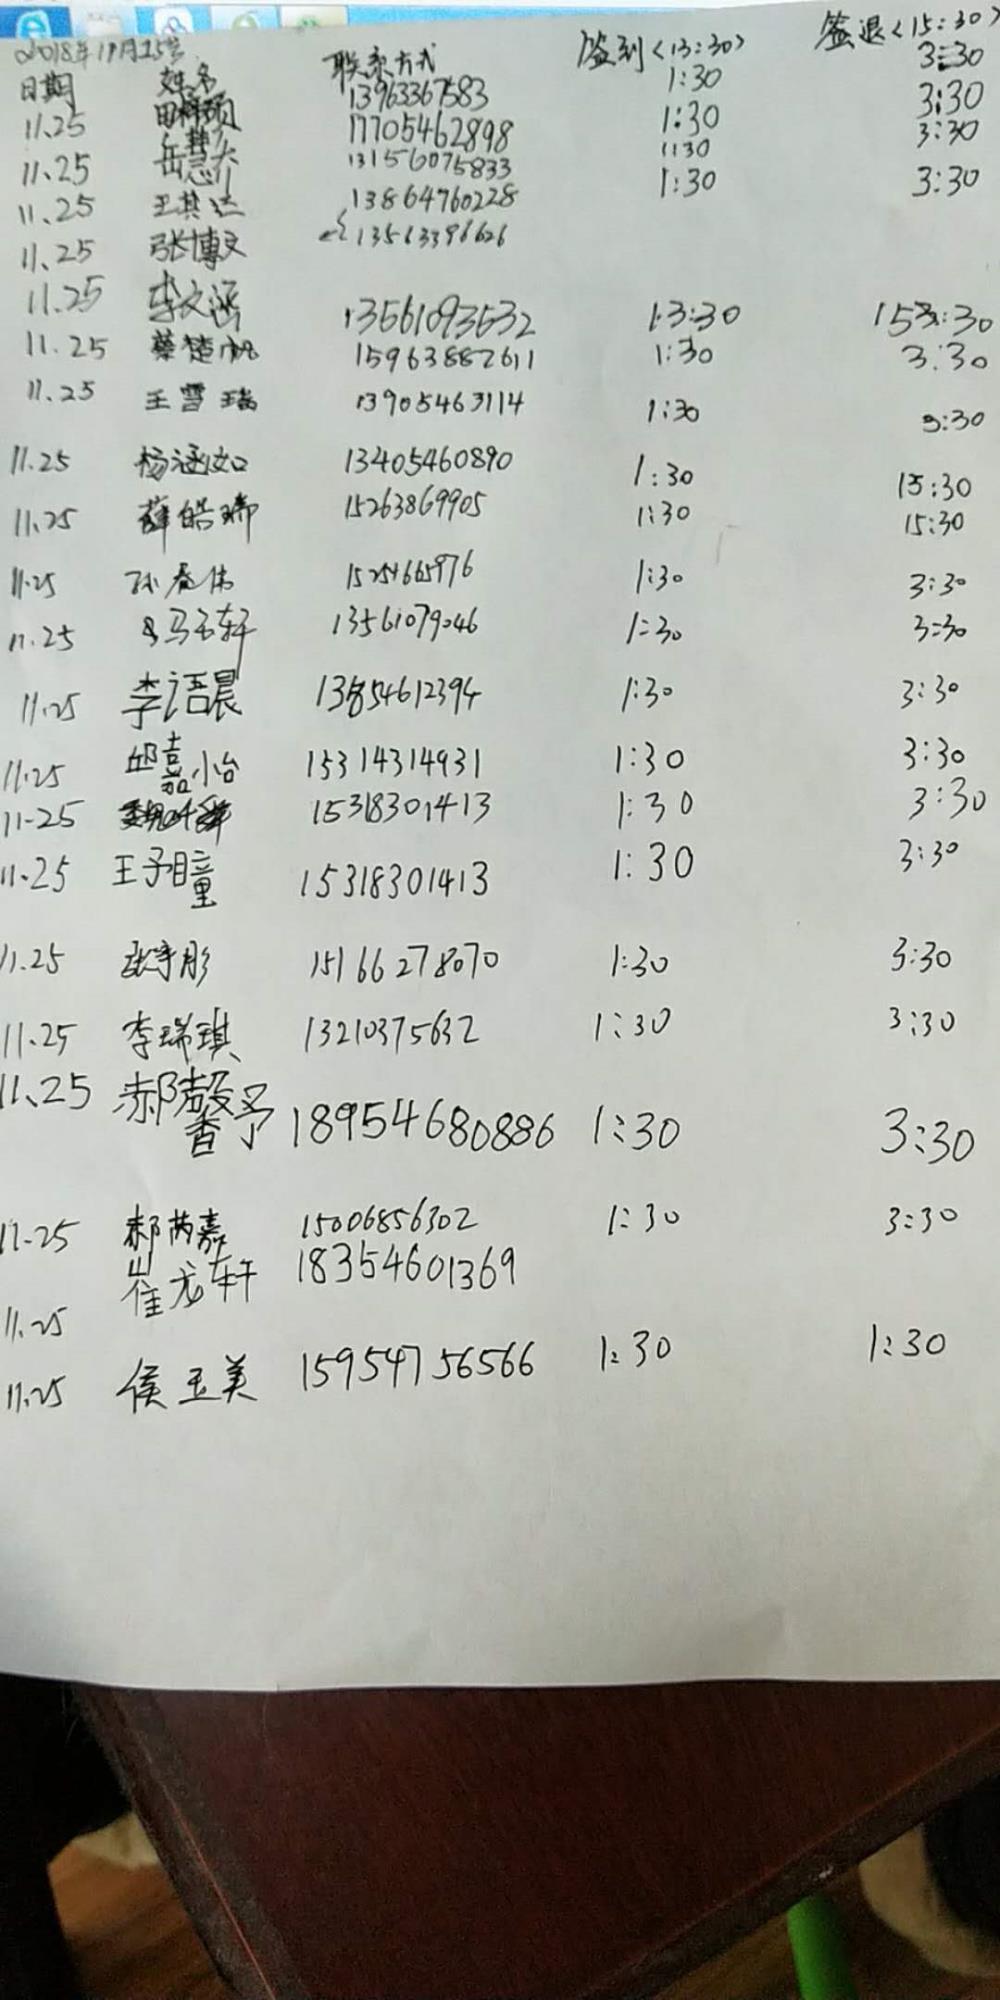 2018年11月25号
日期 姓名 联系方式 签到(13:30) 签退(15:30)
11.25 田 13963367583 1:30 3:30
11.25 岳 17705462898 1:30 3:30
11.25 王其达 13156075833 1:30 3:30
11.25 张博文 13864760228 1:30 3:30
11.25 李文涵 13563396626
11.25 蔡楚帆 13561093532 13:30 15:30
11.25 王雪瑞 15963882611 1:30 3:30
13905463114 1:30 3:30
11.25 杨涵如 13405460890 1:30 15:30
11.25 薛皓瑞 15263869905 1:30 15:30
11.25 孙彦伟 15254665976 1:30 3:30
11.25 马玉轩 13561079046 1:30 3:30
11.25 李语晨 13854612394 1:30 3:30
11.25 邱嘉怡 15314314931 1:30 3:30
11.25 魏 15318301413 1:30 3:30
11.25 王予瞳 15318301413 1:30 3:30
11.25 张宇彤 15166278070 1:30 3:30
11.25 李瑞琪 13210375632 1:30 3:30
11.25 郝馨予 18954680886 1:30 3:30
11.25 郝芮嘉 15006856302 1:30 3:30
11.25 崔龙轩 18354601369
11.25 侯玉美 15954756566 1:30 1:30